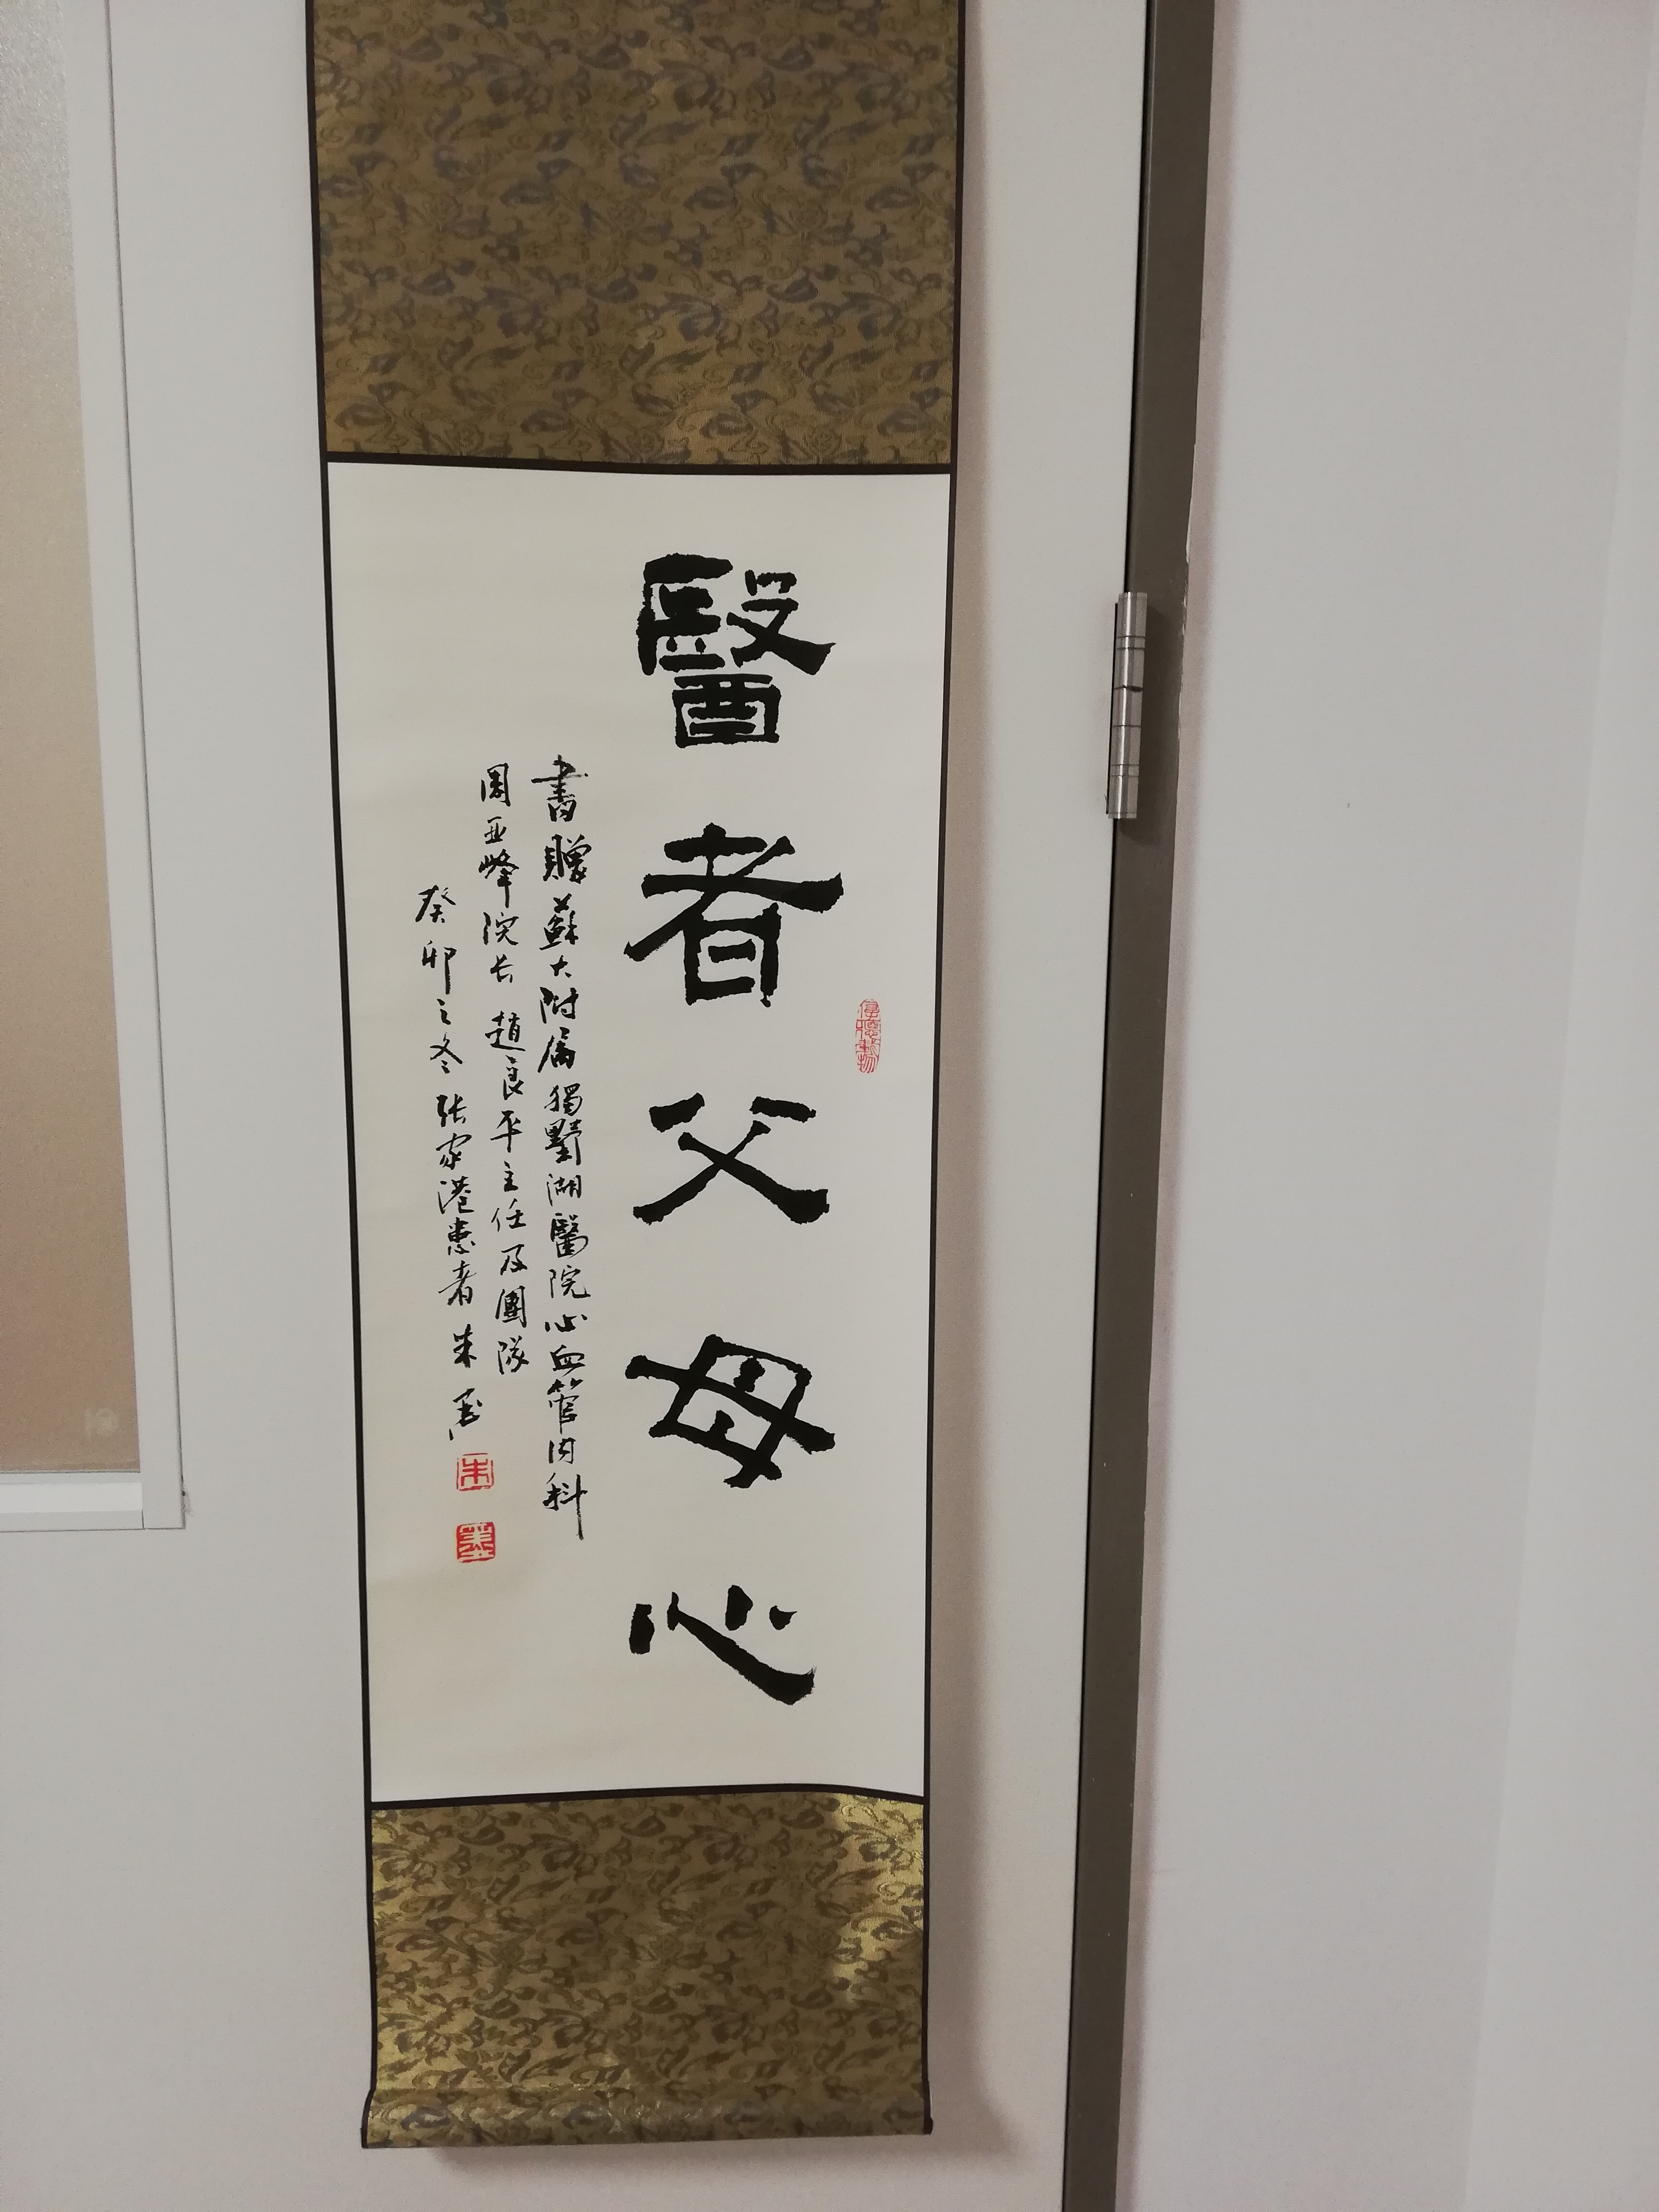 醫者父母心
厚德載物
書贈蘇大附属獨墅湖醫院心血管内科
周亚峰院长趙良平主任及團隊
癸卯之冬张家港患者朱
朱